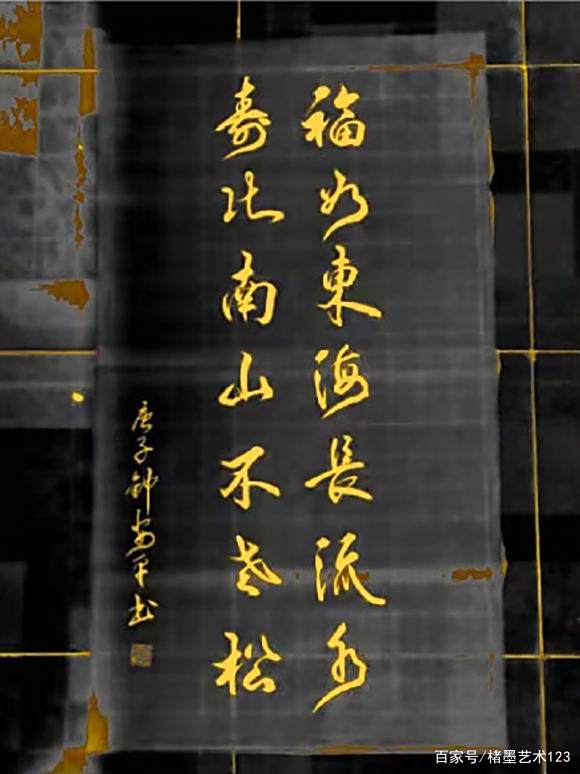 福如東海長流水
寿比南山不老松
庚子钟安平书
百家号/楮墨艺术123